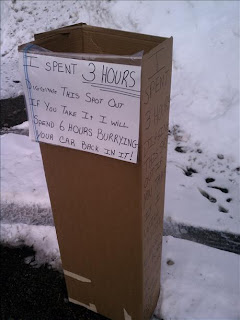 I SPENT 3 HOURS
DIGGING THIS SPOT OUT
IF YOU TAKE IT, I WILL
SPEND 6 HOURS BURRYING
YOUR CAR BACK IN IT!
I SPENT
3 HOURS